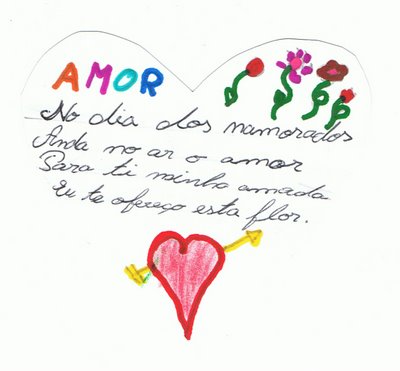 AMOR
No dia dos namorados
Anda no ar o amor
Para ti minha amada
Eu te ofereço esta flor.